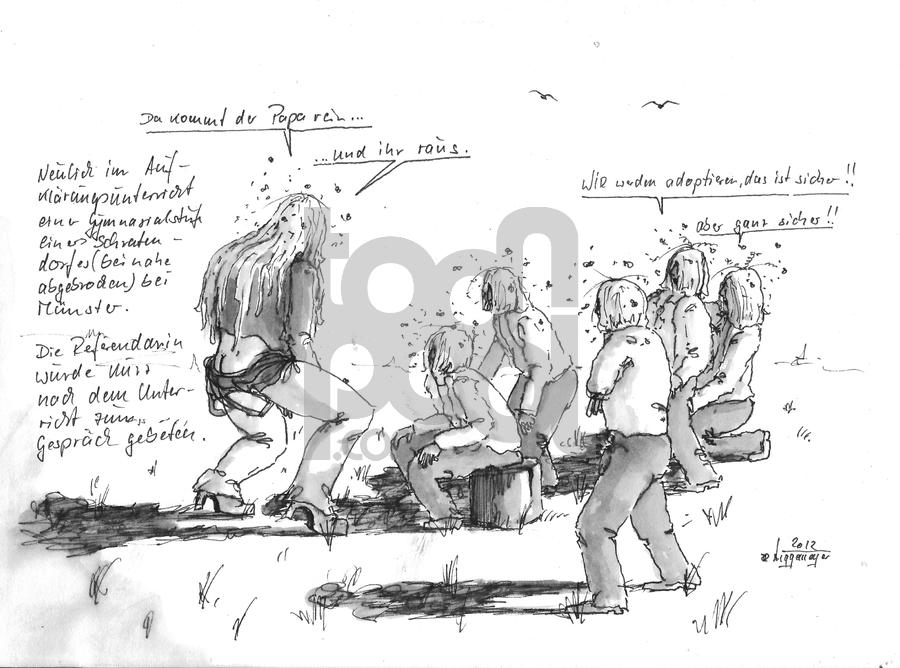 Da kommt der Papa rein...
...und ihr raus.
Neulich im Auf-
klärungsunterricht
einer Gymnasialstufe
eines Schraten-
dorfes (beinahe
abgebrochen) bei
Münster.
Die Referendarin
wurde
nach dem Unter-
richt zum
Gespräch gebeten.
Wir werden adoptieren, das ist sicher!!
aber ganz sicher!!
toonpool
.com
2012